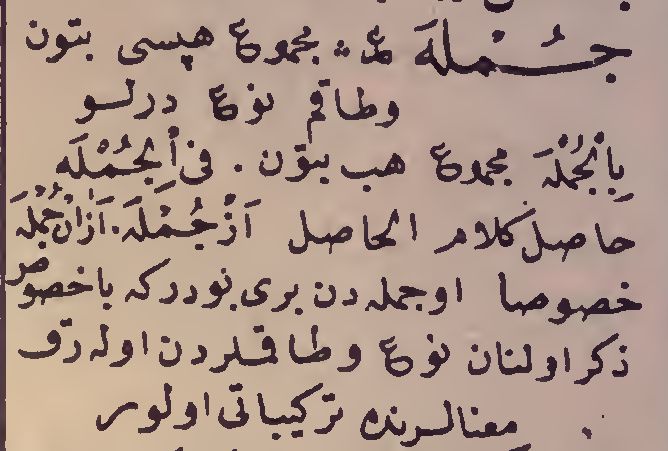 جُمْلَه ع : مجموع هپسى بتون
وطاقم نوع درلو
بِالْجُمْلَه مجموع هب بتون . فى الْجُمْلَه
حاصل كلام الحاصل اَزْ جُمْلَه . اَزَانْ جُمْلَه
خصوصا اوجمله دن برى بودركه باخصوص
ذكر اولنان نوع وطاقملردن اوله رق
معنالرنده تركيباتى اولور